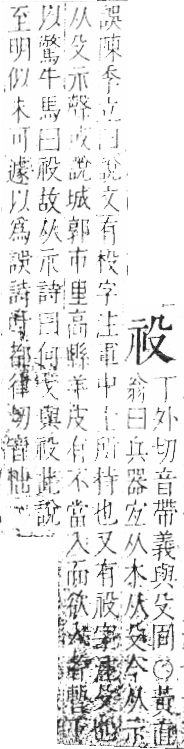 祋
丁外切音帶義與殳同○黃直
翁曰兵器宜从木从殳今从示
誤陳季立曰說文有杸字注軍中士所持也又有祋字殳也
从殳示聲或說城郭市里高縣羊皮有不當入而欲入者暫下
以驚牛馬曰祋故从示詩曰何戈與祋此說
至明似未可遽以為誤詩都律切音柮